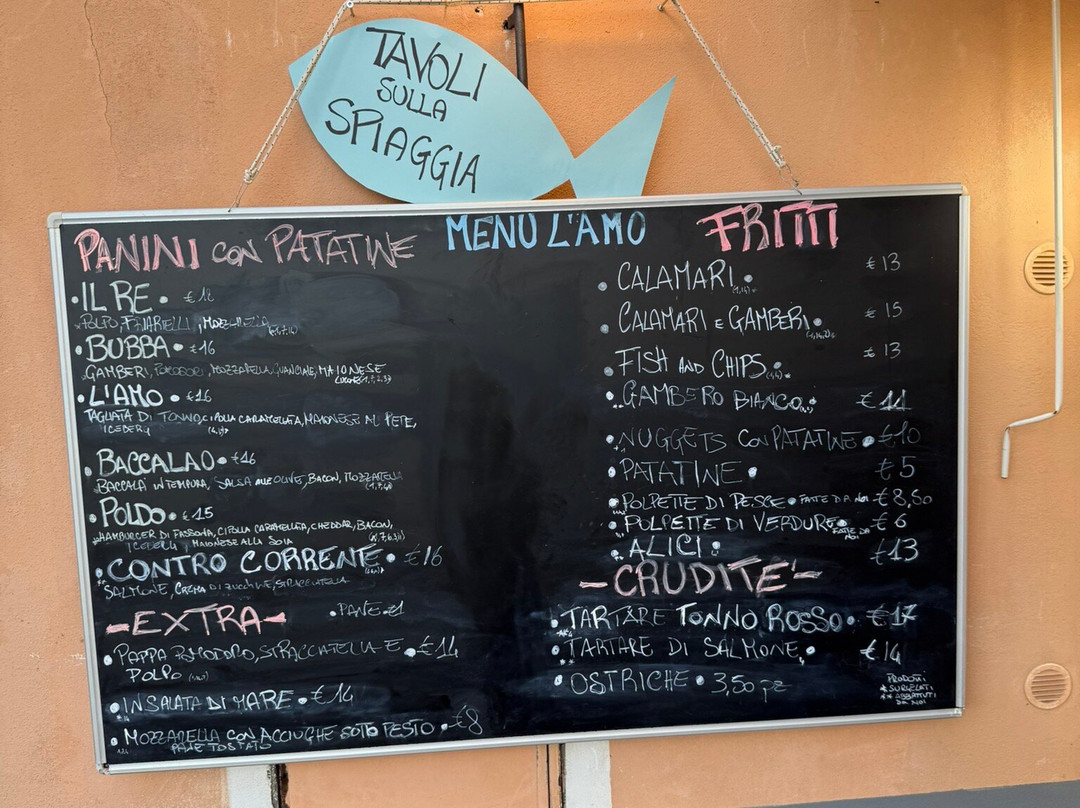 TAVOLI
SULLA
SPIAGGIA
MENU L'AMO
PANINI CON PATATINE
• IL RE • €12
POLPO, FRIARIELLI, MOZZARELLA
• BUBBA • €16
GAMBERI, POMODORI, MOZZARELLA, GUANCIALE, MAIONESE
• L'AMO • €16
TAGLIATA DI TONNO, CIPOLLA CARAMELLATA, MAIONESE AL
ICEBERG
• BACCALAO • €16
BACCALÀ IN TEMPURA, SALSA ALLE OLIVE, BACON, MOZZARELLA
• POLDO • €15
HAMBURGER DI CIPOLLA CARAMELLATA, CHEDDAR, BACON,
ICEBERG, MAIONESE ALLA SOIA
• CONTRO CORRENTE • €16
SALMONE, CREMA DI ZUCCHINE, STRACCIATELLA
- EXTRA -
• PANE €1
• PAPPA POMODORO, STRACCIATELLA E • €14
POLPO
• INSALATA DI MARE • €14
• MOZZARELLA CON ACCIUGHE SOTTO PESTO • €8
PANE TOSTATO
FRITTI
• CALAMARI • €13
• CALAMARI E GAMBERI • €15
• FISH AND CHIPS • €13
• GAMBERO BIANCO • €11
• NUGGETS CON PATATINE • €10
• PATATINE • €5
• POLPETTE DI PESCE • FATTE DA NOI €8,50
• POLPETTE DI VERDURE • FATTE DA NOI €6
• ALICI • €13
- CRUDITE' -
• TARTARE TONNO ROSSO • €17
• TARTARE DI SALMONE • €14
• OSTRICHE • 3,50 pz
PRODOTTI
* SURGELATI
** ABBATTUTI
DA NOI